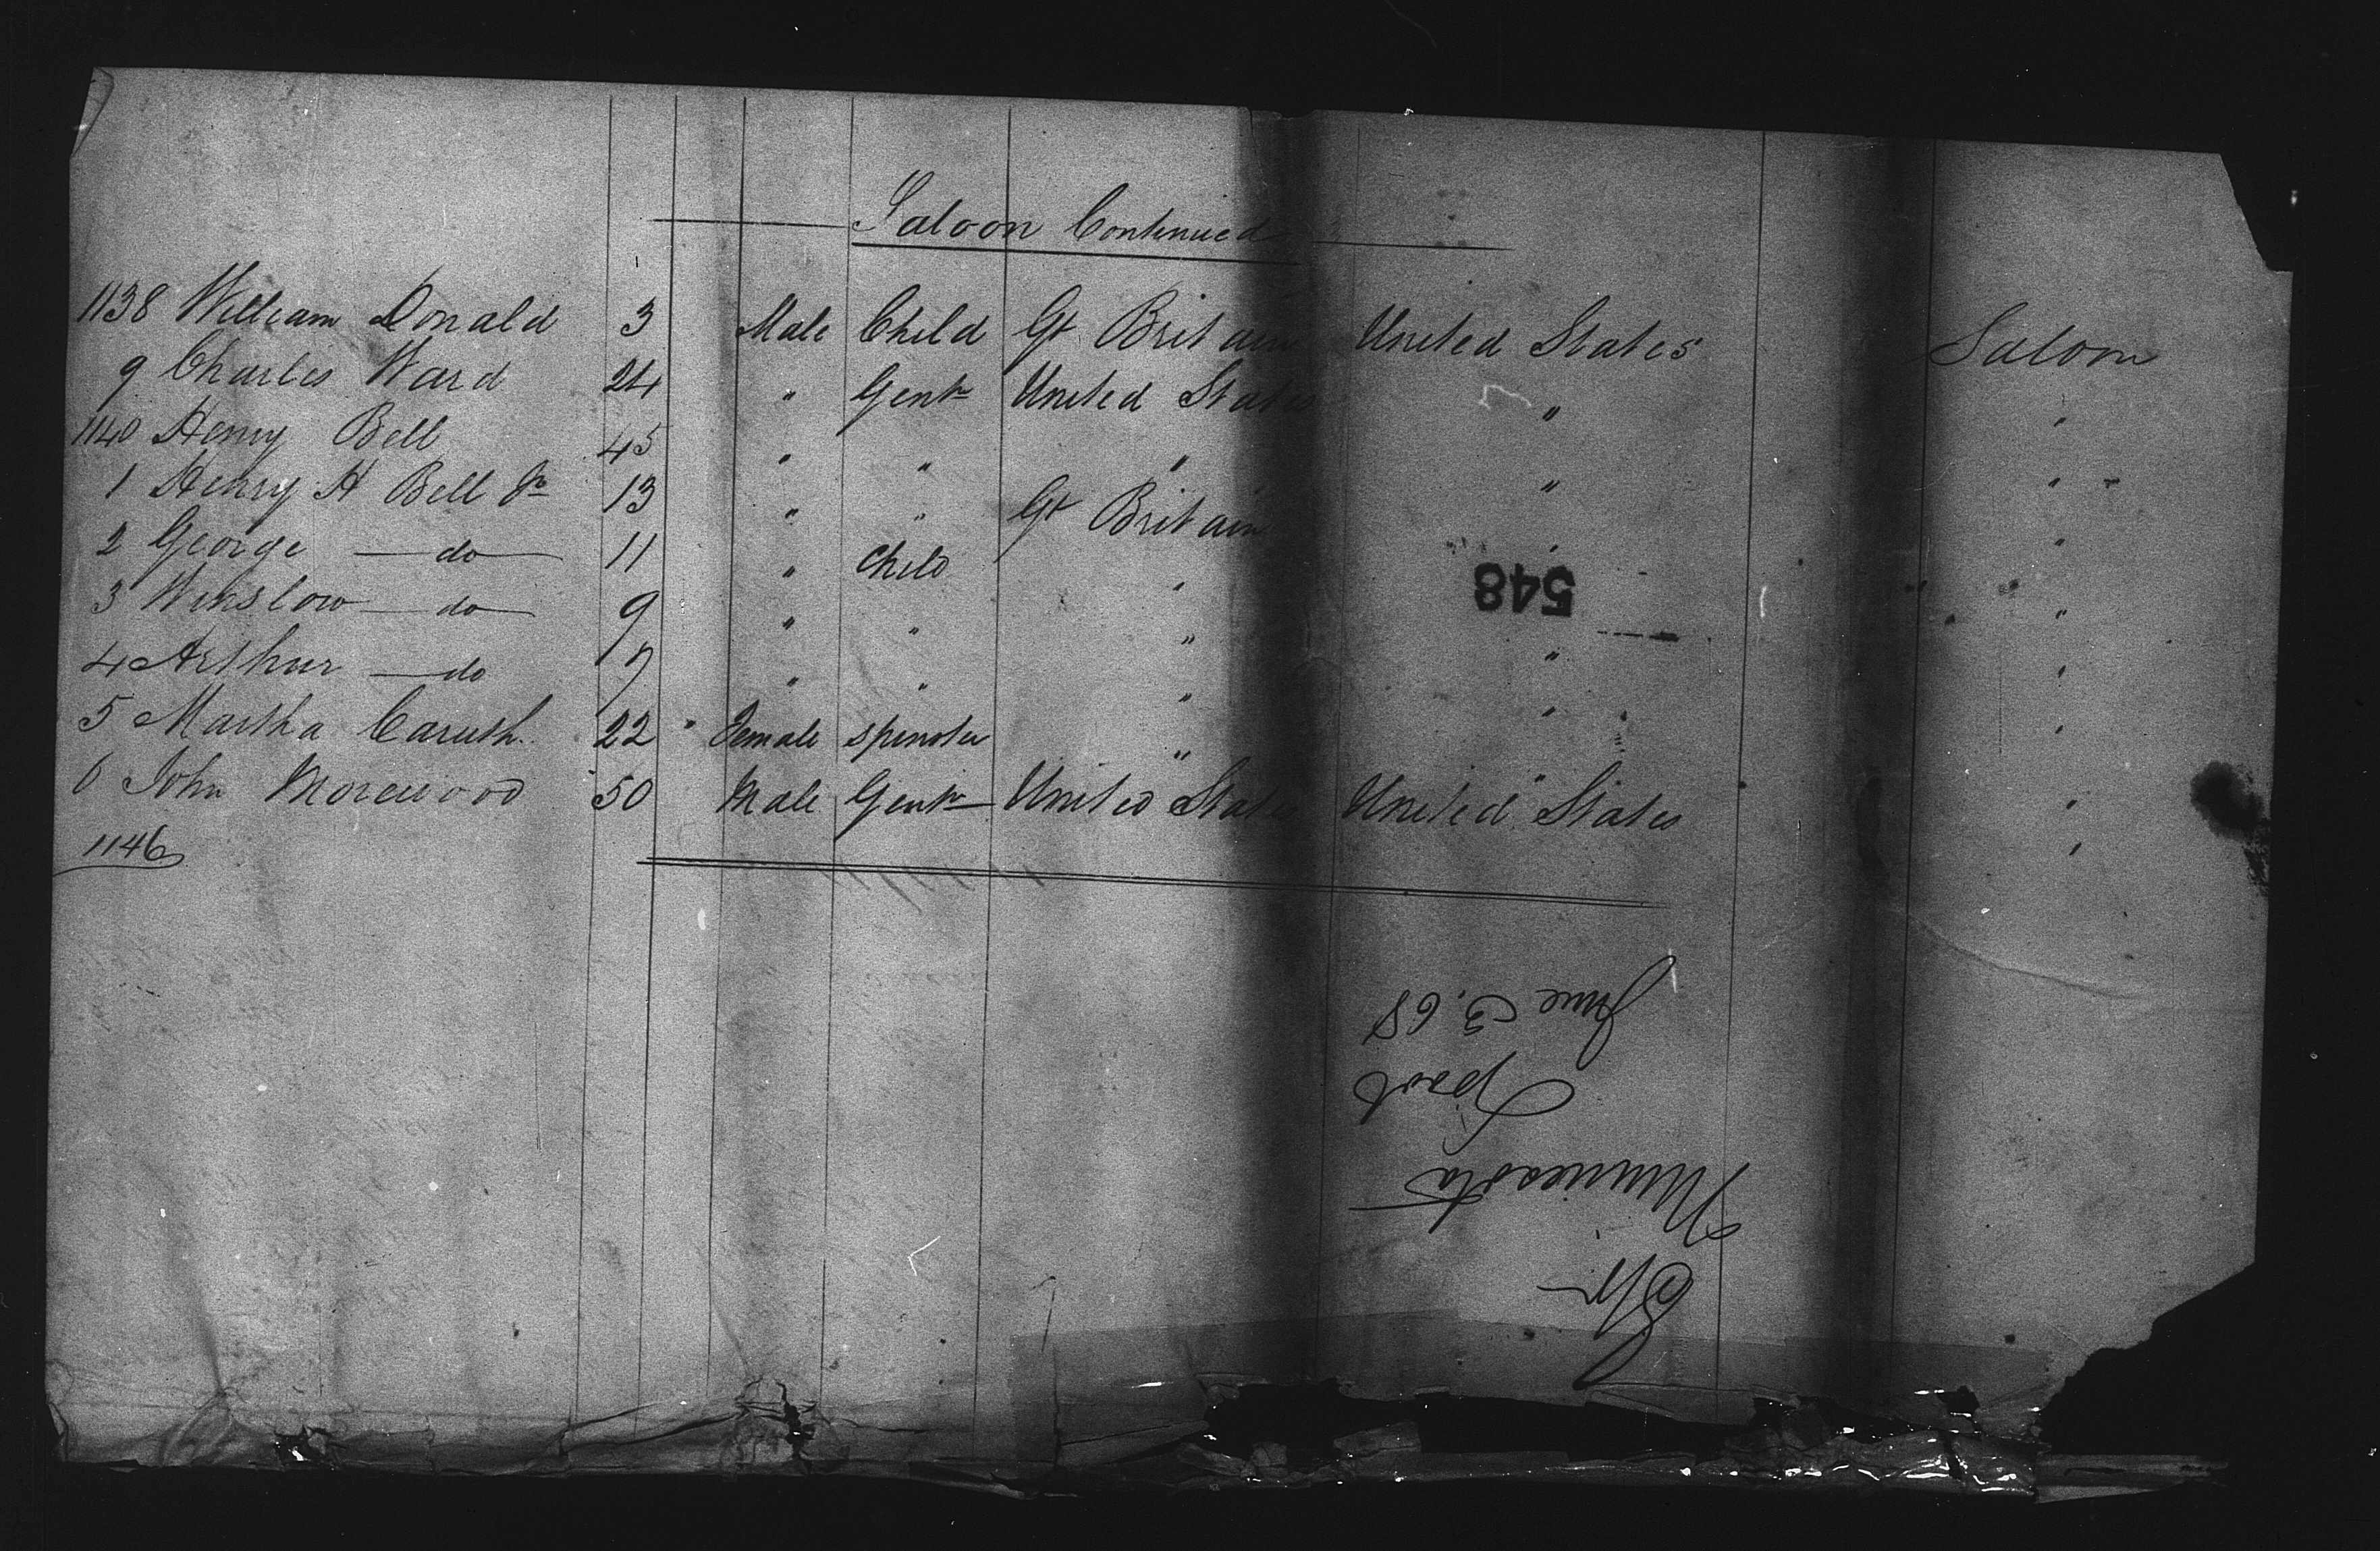 Saloon Continued
1138 William Donald 3 Male Child Gt Britain United States Saloon
9 Charles Ward 24 " Gentn United States " "
1140 Henry Bell 45 " " " " "
1 Henry H Bell Jr 13 " " Gt Britain " "
2 George do 11 " Child " "
3 Winslow do 9 " " " " "
4 Arthur do 7 " " " " "
5 Martha Caruth 22 Female spinster " " "
6 John Morewood 50 Male Gentn United States United States "
1146
548
Str
Minnesota
Lpool
June 3. 68